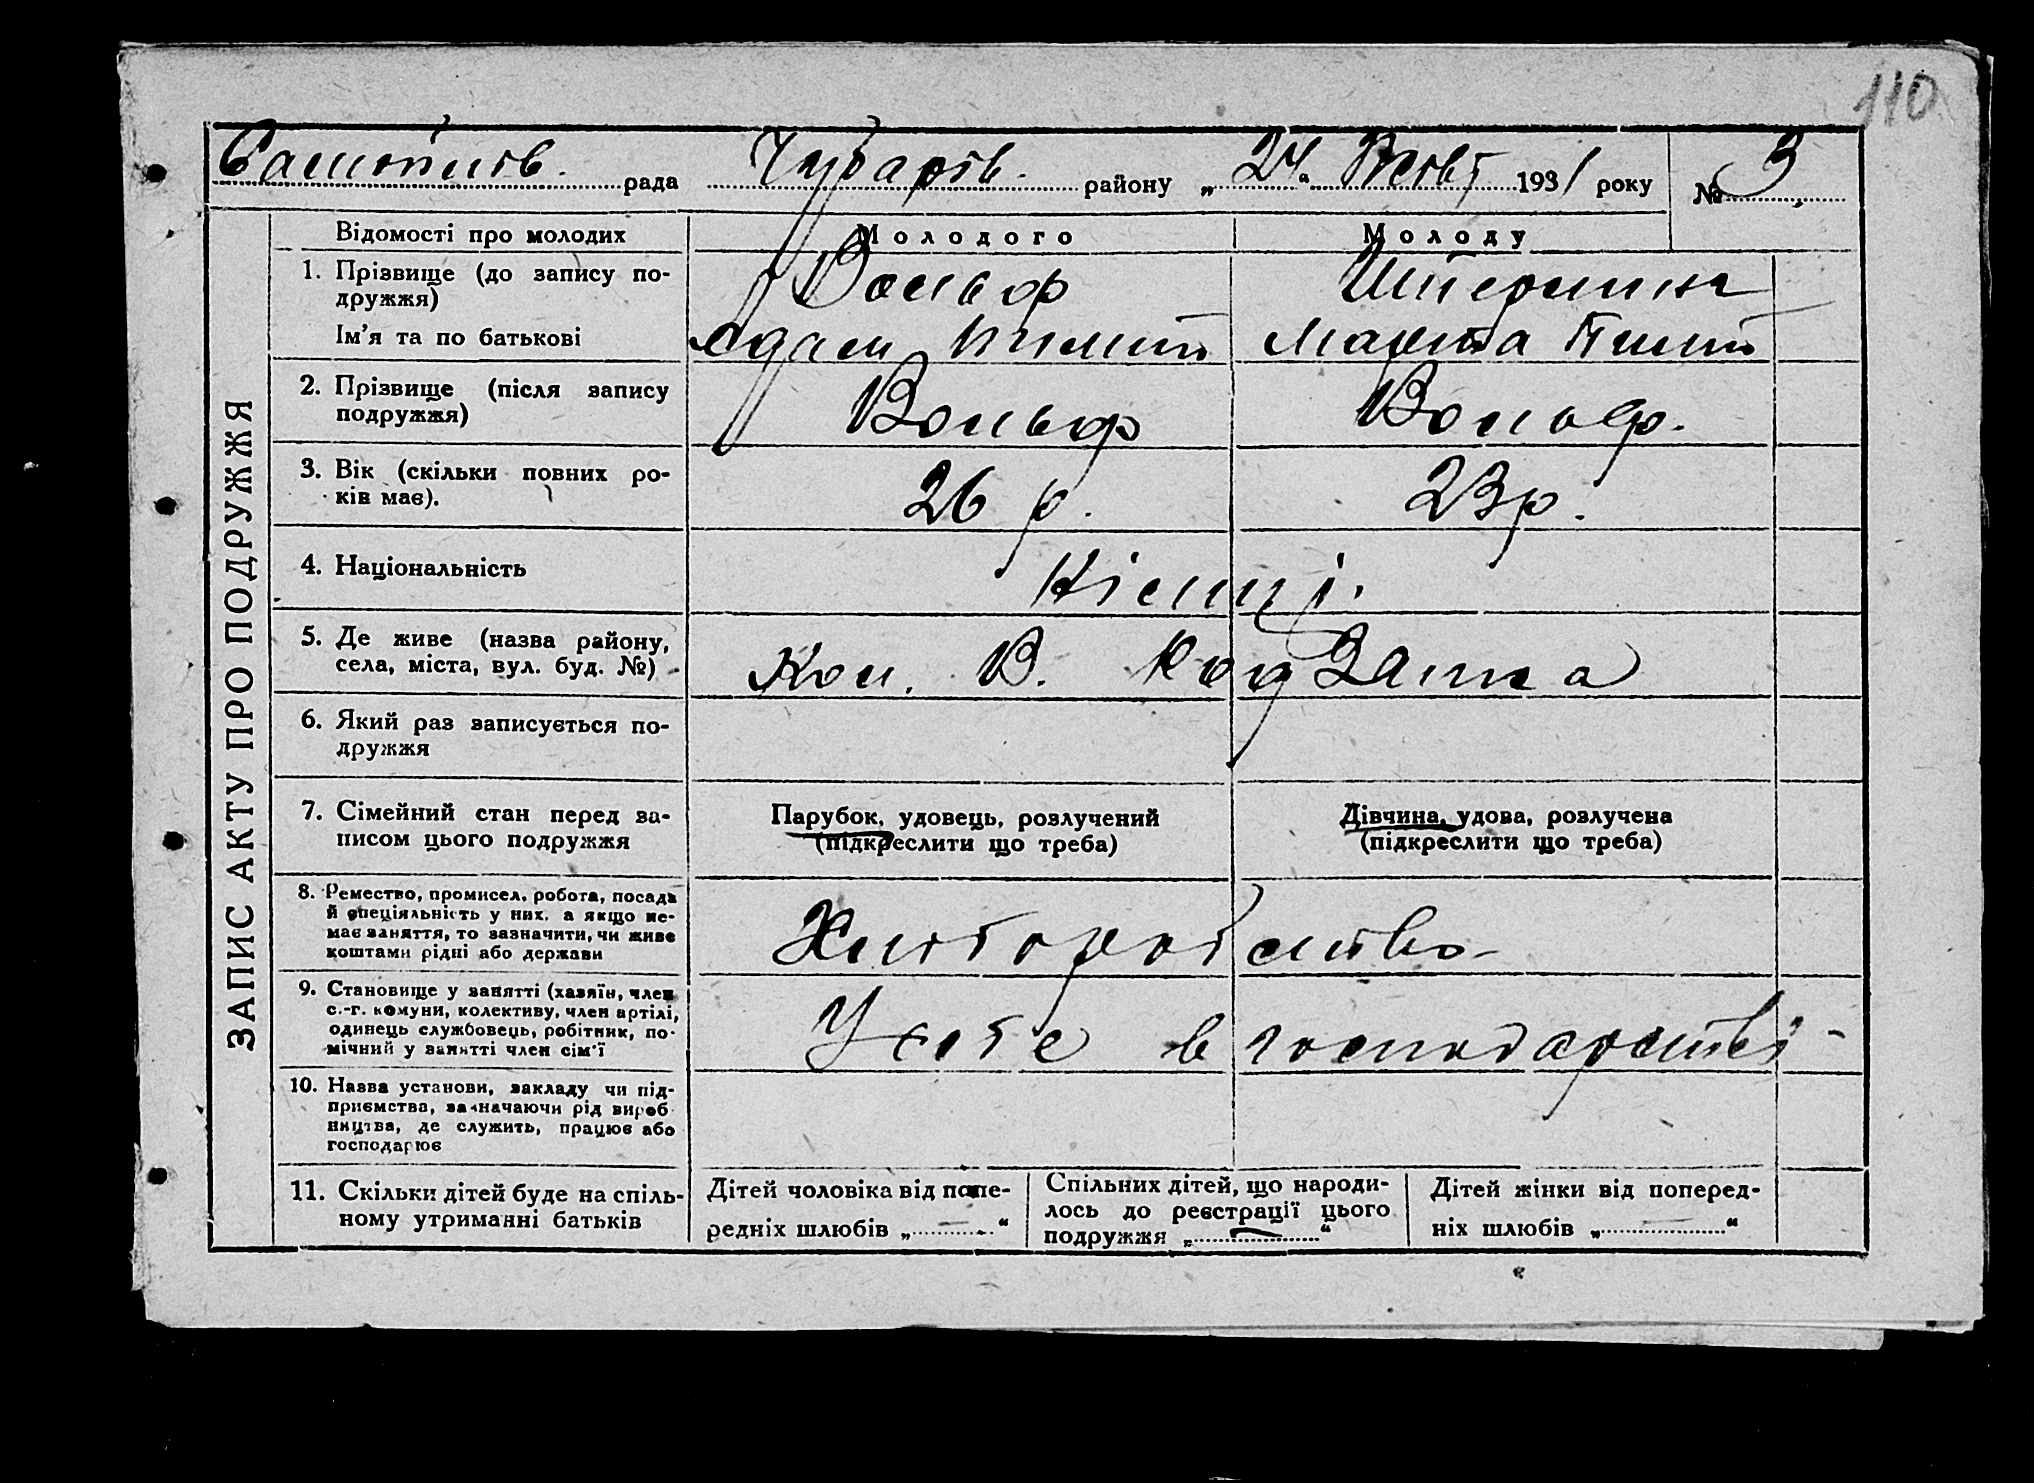 110
рада Чубарів. району „24" Жовт 1931 року № 3
Відомості про молодих Молодого Молоду
1. Прізвище (до запису по-
дружжя) Вольф
Ім'я та по батькові Адам Марта
2. Прізвище (після запису
подружжя) Вольф Вольф.
3. Вік (скільки повних ро-
ків має). 26 р. 23 р.
4. Національність Німці.
5. Де живе (назва району,
села, міста, вул. буд. №) Кол. В.
6. Який раз записується по-
дружжя
7. Сімейний стан перед за-
писом цього подружжя
Парубок, удовець, розлучений
(підкреслити що треба)
Дівчина, удова, розлучена
(підкреслити що треба)
8. Ремество, промисел, робота, посада
й спеціяльність у них, а якщо не-
має заняття, то зазначити, чи живе
коштами рідні або держави
Хліборобство
9. Становище у занятті (хазяїн, член
с.-г. комуни, колективу, член артілі,
одинець службовець, робітник, по-
мічний у занятті член сім'ї
У себе в господарстві
10. Назва установи, закладу чи під-
приємства, зазначаючи рід вироб-
ництва, де служить, працює або
господарює
11. Скільки дітей буде на спіль-
ному утриманні батьків
Дітей чоловіка від попе-
редніх шлюбів „ — "
Спільних дітей, що народи-
лось до реєстрації цього
подружжя „ — "
Дітей жінки від поперед-
ніх шлюбів „ — "
ЗАПИС АКТУ ПРО ПОДРУЖЖЯ